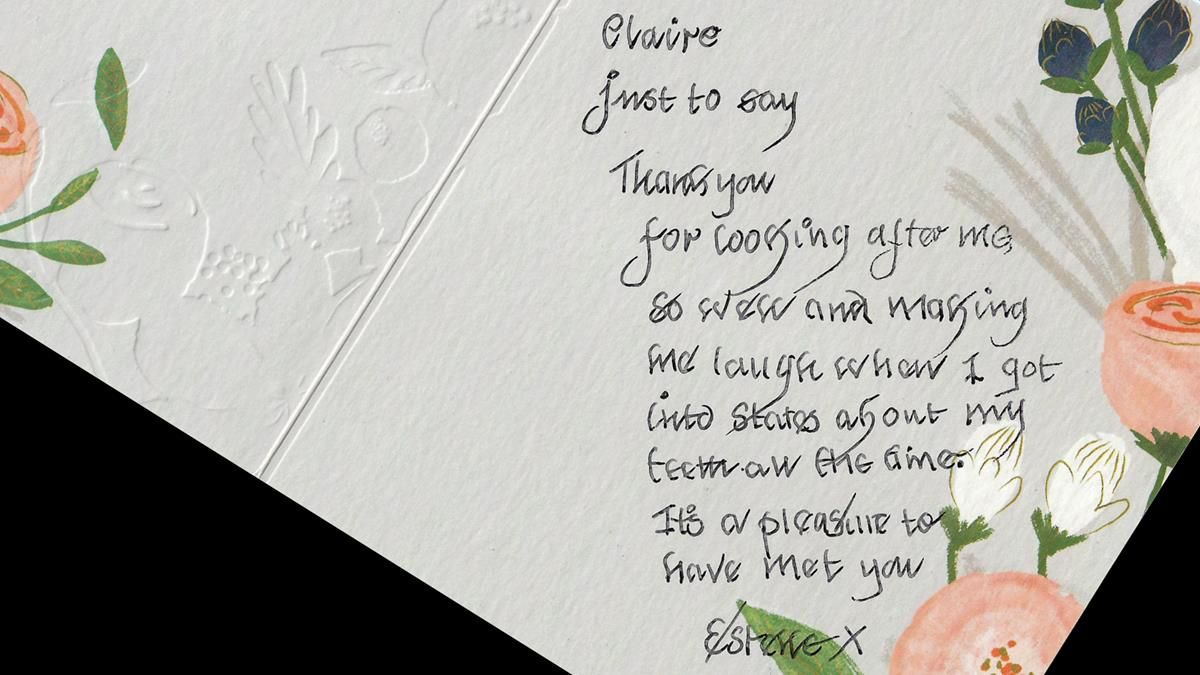 Claire
just to say
Thankyou
for looking after me
so well and making
me laugh when I got
into states about my
teeth all the time.
It's a pleasure to
have met you
X